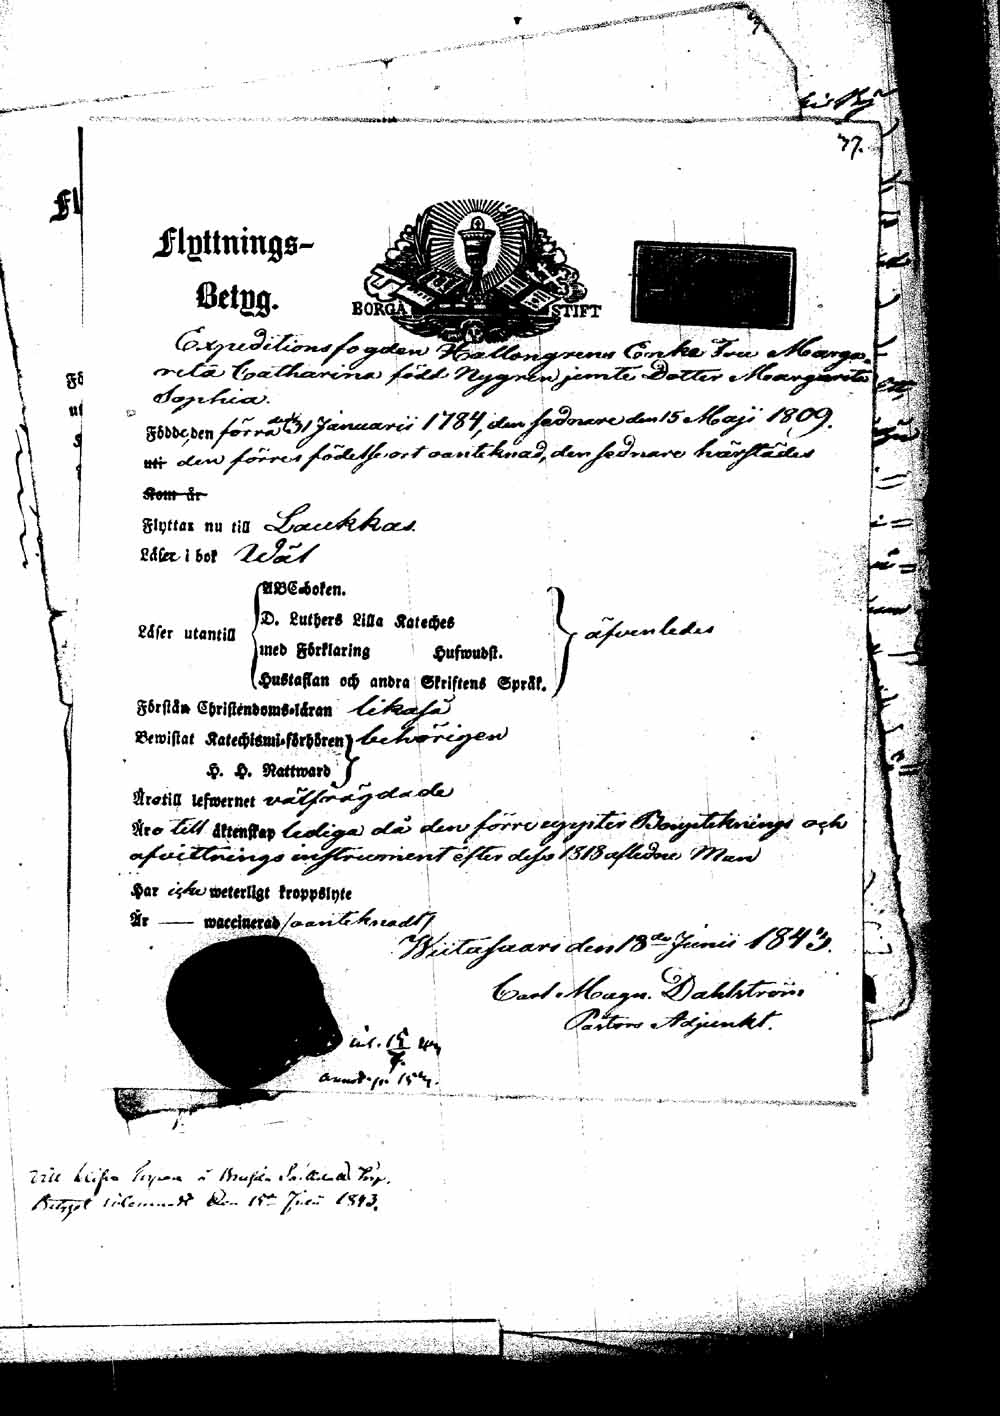 37.
Flyttnings-
Betyg.
BORGÅ STIFT
Expeditionsfogden Hallongrens Enka Fru Marga-
reta Catharina född Nygren jemte Dotter Margareta
Sophia.
Födde, den förra den 31 Januarii 1784, den sednare den 15 Maji 1809.
uti den förres födelseort oantecknad, den sednare härstädes
Kom år
Flyttar nu till Laukkas.
Läser i bok Wäl
ABC-boken.
D. Luthers Lilla Kateches
Läser utantill äfvenledes
med Förklaring Hufwudst.
Hustaflan och andra Skriftens Språk.
Förstån Christendoms-läran likaså
Bewistat Katechismi-förhören behörigen
H. H. Nattward
Äro till lefwernet välfrägdade
Äro till äktenskap lediga då den förre egypter Bouptecknings och
afvittrings instrument efter dess 1818 aflidne Man
Har icke weterligt kroppslyte
Är — waccinerad /oantecknadt/
Wiitasaari den 18de Junii 1843.
Carl Magn. Dahlström
Pastors Adjunkt.
15
7
Betyget den 15de Julii 1843.